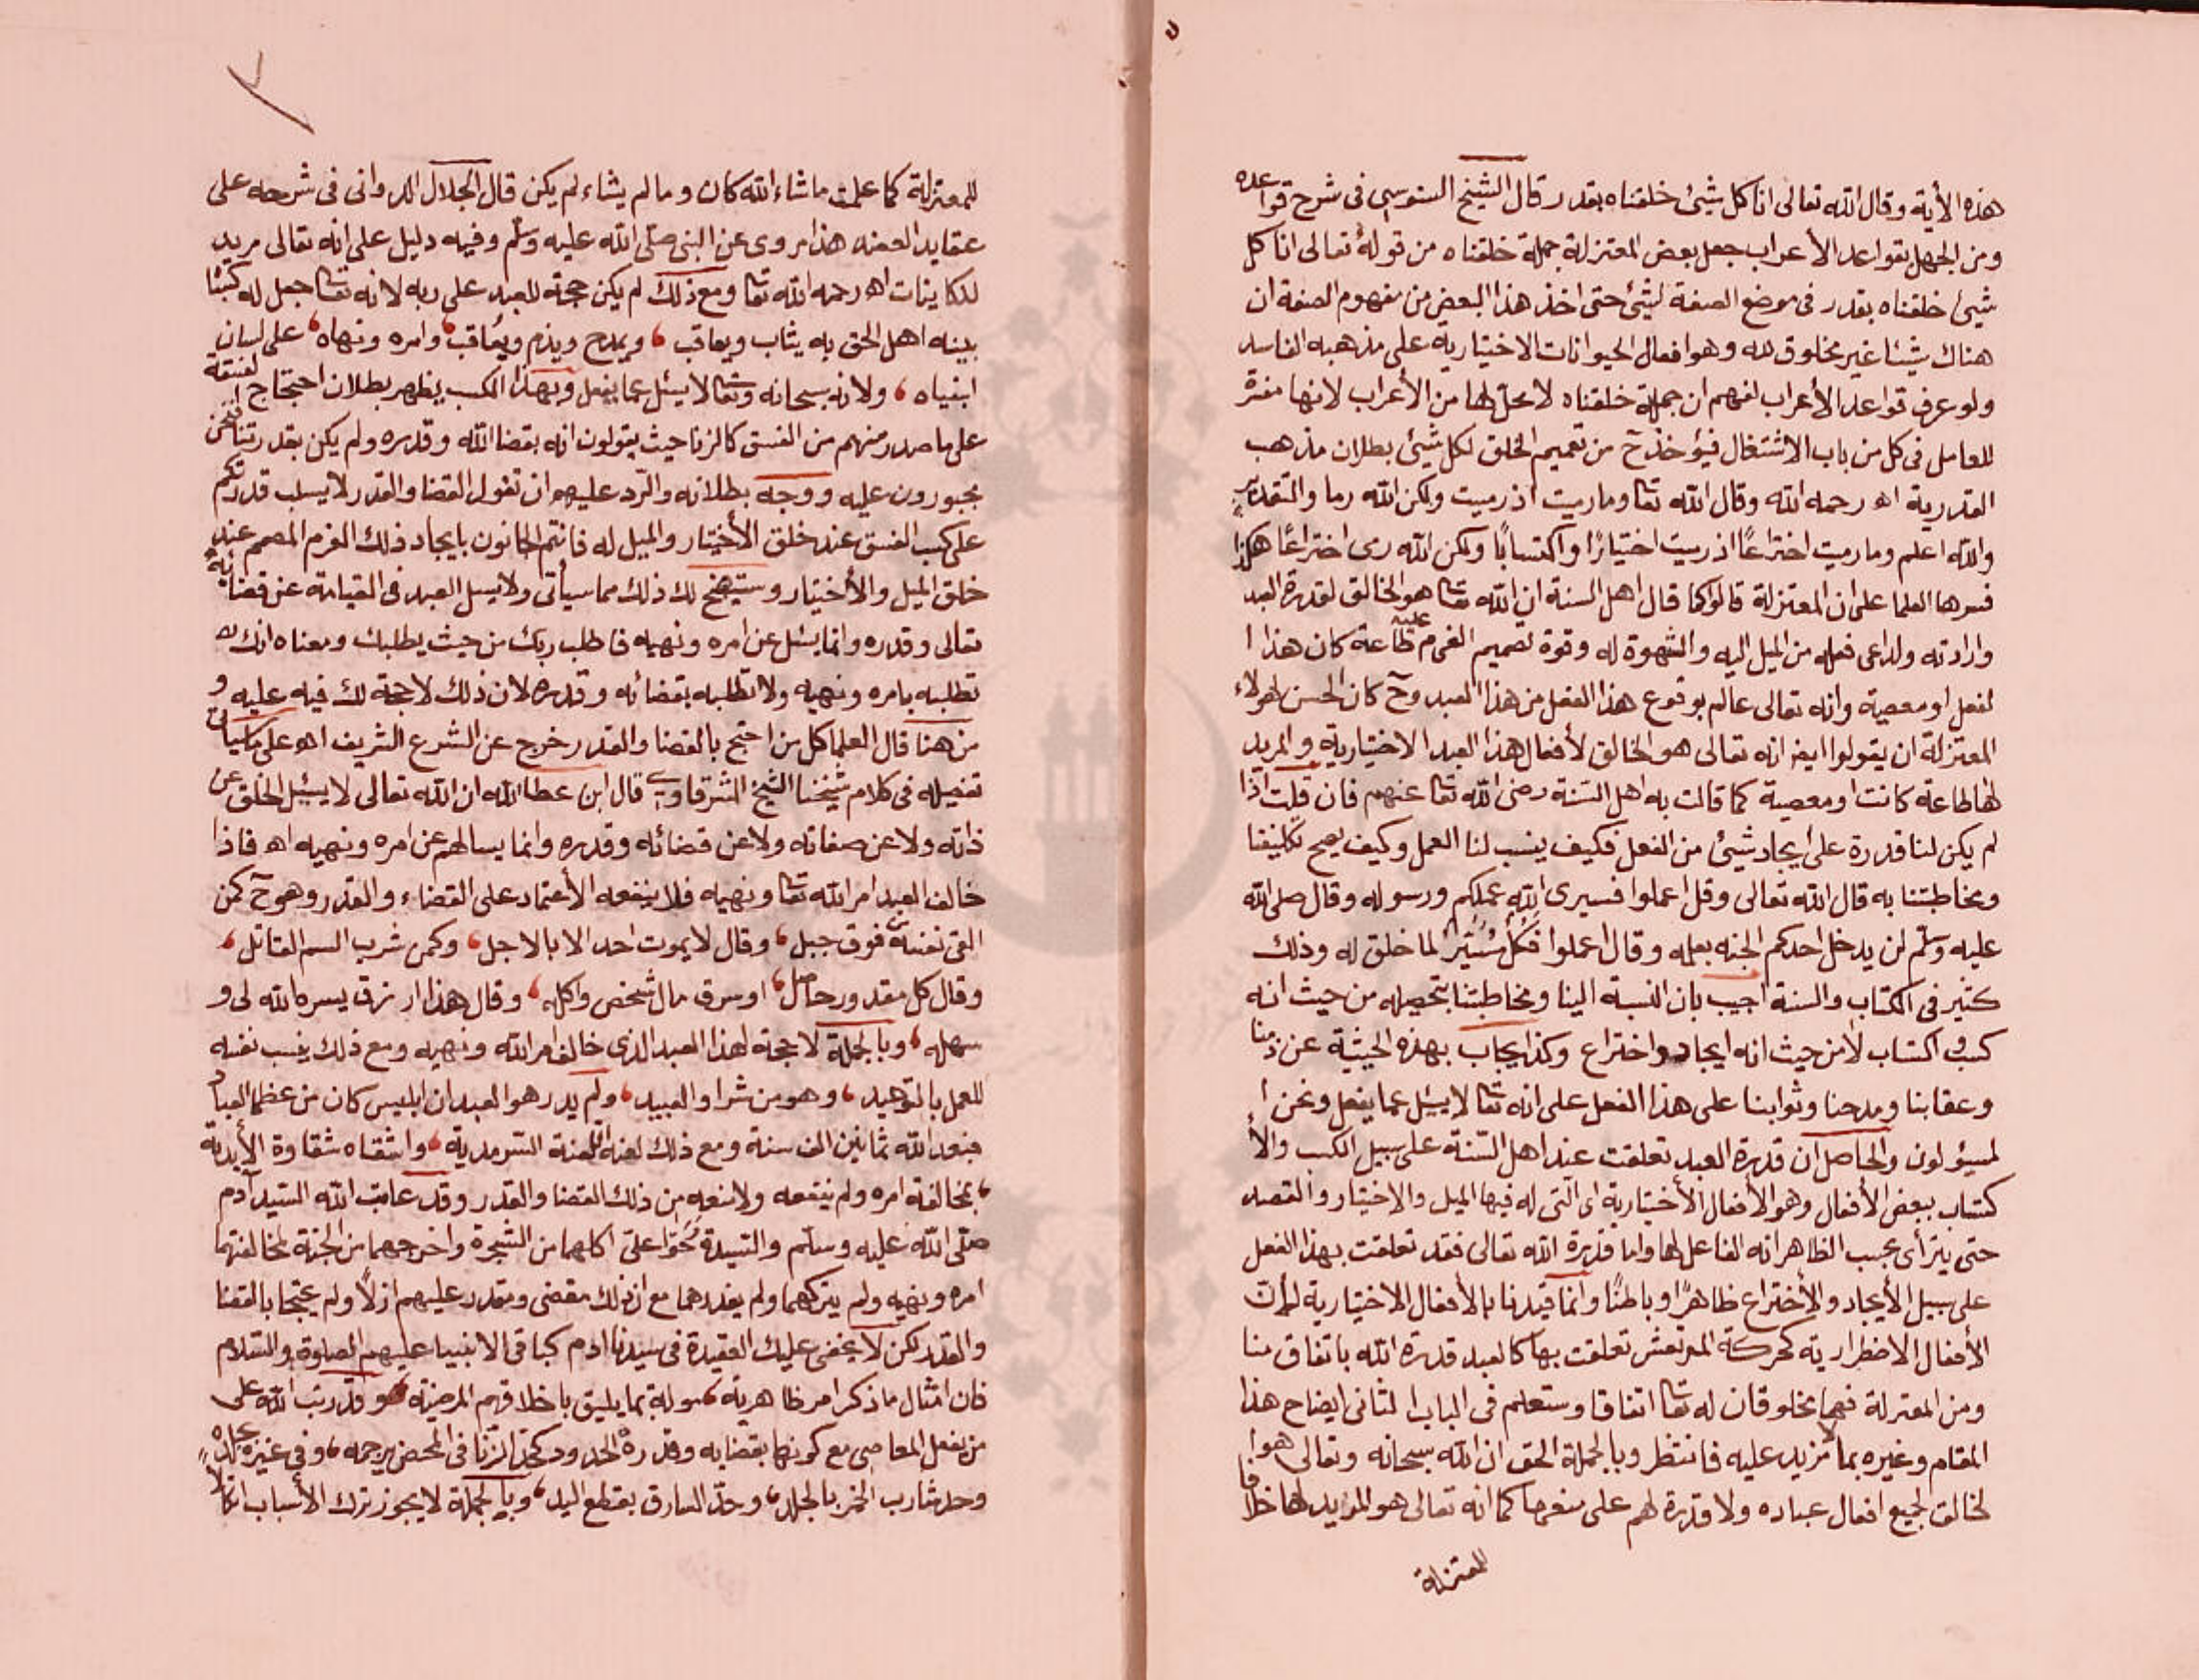 هذه الأية وقال الله تعالى انا كل شيئ خلقناه بقدر قال الشيخ السنوسي فى شرح قواعده
ومن الجهل بقواعد الأعراب جعل بعض المعتزلة جملة خلقناه من قوله تعالى انا كل
شيئ خلقناه بقدر فى موضع الصفة لشيئ حتى اخذ هذا البعض من مفهوم الصفة ان
هناك شيئا غير مخلوق لله وهو افعال الحيوانات الاختيارية على مذهبه الفاسد
ولو عرف قواعد الأعراب لفهم ان جملة خلقناه لا محل لها من الأعراب لانها مفسرة
للعامل فى كل من باب الاشتغال فيؤخذ ح من تعميم الخلق لكل شيئ بطلان مذهب
القدرية اه رحمه الله وقال الله تعا وما رميت اذ رميت ولكن الله رما والتقدير
والله اعلم وما رميت اختراعًا اذ رميت اختيارًا واكتسابًا ولكن الله رمى اختراعًا هكذا
فسرها العلما على ان المعتزلة قالوا كما قال اهل السنة ان الله تعا هو الخالق لقدرة العبد
وارادته ولداعى فعله من الميل اليه والشهوة له وقوة تصميم العزم عليه طاعة كان هذا ا
لفعل او معصية وانه تعالى عالم بوقوع هذا الفعل من هذا العبد وح كان الحسن لهولاء
المعتزلة ان يقولوا ايضا انه تعالى هو الخالق لأفعال هذا العبد الاختيارية والمريد
لها طاعة كانت او معصية كما قالت به اهل السنة رضى الله تعا عنهم فان قلت اذا
لم يكن لنا قدرة على ايجاد شيئ من الفعل فكيف ينسب لنا العمل وكيف يصح تكليفنا
ومخاطبتنا به قال الله تعالى وقل اعملوا فسيرى الله عملكم ورسوله وقال صلى الله
عليه وسلم لن يدخل احدكم الجنه بعمله وقال اعملوا فكل ميسر لما خلق له وذلك
كثير فى الكتاب والسنة اجيب بان النسبة الينا ومخاطبتنا بتحصيله من حيث انه
كسب واكتساب لا من حيث انه ايجاد واختراع وكذا يجاب بهذه الحيثية عن ذمنا
وعقابنا ومدحنا وثوابنا على هذا الفعل على انه تعا لا يسئل عما يفعل ونحن ا
لمسؤلون والحاصل ان قدرة العبد تعلقت عند اهل السّنة على سبيل الكسب والأ
كتساب ببعض الأفعال وهو الأفعال الأختيارية اى التى له فيها الميل والاختيار والقصد
حتى يترأى بحسب الظاهر انه الفاعل لها واما قدرة الله تعالى فقد تعلقت بهذا الفعل
على سبيل الأيجاد والأختراع ظاهرًا وباطنًا وانما قيدنا بالأفعال الاختيارية لأن
الأفعال الاضطرارية كحركة المرتعش تعلقت بها كالعبد قدرة الله باتفاق منا
ومن المعتزلة فهما مخلوقان له تعا اتفاقا وستعلم فى الباب الثانى ايضاح هذا
المقام وغيره بما لا مزيد عليه فانتظر وبالجملة الحق ان الله سبحانه وتعالى هوا
لخالق لجميع افعال عباده ولا قدرة لهم على كما انه تعالى هو المريد لها خلافا
للمعتزلة
للمعتزلة كما علمت ما شاء الله كان وما لم يشاء لم يكن قال الجلال الدوانى فى شرحه على
عقايد العضد هذا مروى عن النبى صلى الله عليه وسلم وفيه دليل على انه تعالى مريد
للكاينات اه رحمه الله تعا ومع ذلك لم يكن حجة للعبد على ربه لانه تعا جعل له كسبًا
بينه اهل الحق به يثاب ويعاقب ، ويمدح ويذم ويعاقب ، وامره ونهاه ، على لسان
انبياه ، ولانه سبحانه وتعا لا يسئل عما يفعل وبهذا الكسب يظهر بطلان احتجاج الفسقة
على ما صدر منهم من الفسق كالزنا حيث يقولون انه بقضا الله وقدره ولم يكن بقدرتنا فنحن
مجبورون عليه ووجه بطلانه والرّد عليهم ان تقول القضا والقدر لا يسلب قدرتكم
على كسب الفسق عند خلق الأختيار والميل له فانتم الجانون بايجاد ذلك العزم المصمم عند
خلق الميل والأختيار وستيضح لك ذلك مما سيأتى ولا يسل العبد فى القيامة عن قضائه
تعالى وقدره وانما يسئل عن امره ونهيه فاطلب ربك من حيث يطلبك ومعناه انك
تطلبه بامره ونهيه ولا تطلبه بقضائه وقدره لان ذلك لا حجة لك فيه عليه و
من هنا قال العلما كل من احتج بالقضا والقدر خرج عن الشرع الشريف اه على ما سيأتى
تفصيله فى كلام شيخنا الشيخ الشرقاوي قال ابن عطا الله ان الله تعالى لا يسئل الخلق عن
ذاته ولا عن صفاته ولا عن قضائه وقدره وانما يسالهم عن امره ونهيه اه فاذا
خالف العبد امر الله تعا ونهيه فلا ينفعه الأعتماد على القضاء والقدر وهو ح كمن
القى نفسه من فوق جبل ، وقال لا يموت احد الا بالاجل ، وكمن شرب السم القاتل ،
وقال كل مقدور حاصل ، او سرق مال شخص واكله ، وقال هذا رزق يسره الله لى و
سهله ، وبالجملة لا حجة لهذا العبد الذى خالف امر الله ونهيه ومع ذلك ينسب نفسه
للعمل بالتوحيد ، وهو من شرار العبيد ، ولم يدر هو العبد ان ابليس كان من عظما العباد
فعبد الله ثمانين الف سنة ومع ذلك لعنه اللعنة السرمدية ، واشقاه شقاوة الأبدية
، بمخالفة امره ولم ينفعه من ذلك القضا والقدر وقد عاتب الله السّيد آدم
صلّى الله عليه وسلّم والسّيدة حوّا على اكلهما من الشجرة واخرجهما من الجنة لمخالفتهما
امره ونهيه ولم يتركهما ولم يعذرهما مع ان ذلك مقضى ومقدر عليهم ازلاً ولم يحتجا بالقضا
والقدر لكن لا يخفى عليك العقيدة فى سيدنا ادم كباقى الانبيا عليهم الصلوة والسّلام
فان امثال ما ذكر امر ظاهرية بما يليق باخلاقهم المرضية ، وقد رتب الله على
من يفعل المعاصى مع كونها بقضايه وقدره الحدود كحد الزنا فى المحض برجمه ، وفى غيره بجلده ،
وحد شارب الخمر بالجلد ، وحدّ السارق بقطع اليد ، وبالجملة لا يجوز ترك الأسباب اتكالا